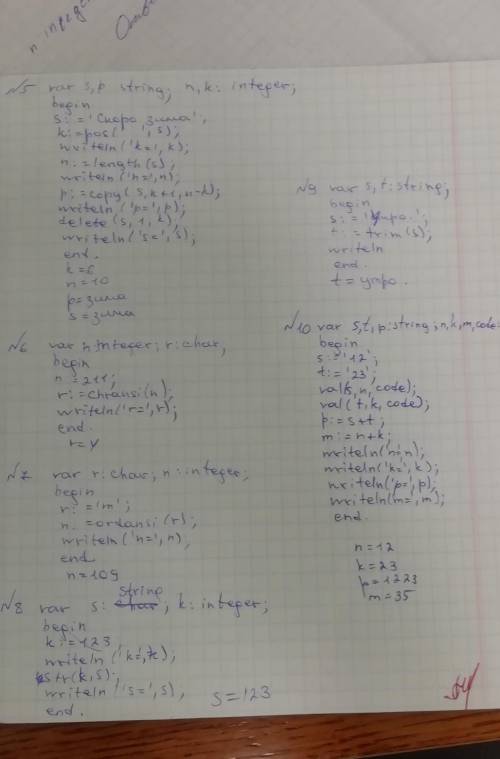 №5 var s,p string; n,k: integer;
begin
s:='Скоро зима';
k:=pos(' ',s);
writeln('k=',k);
n:=length(s);
writeln('n=',n);
p:=copy(s,k+1,n-k);
writeln('p=',p);
delete(s,1,k);
writeln('s=',s);
end.
k=6
n=10
p=зима
s=зима
№6 var n:integer; r:char;
begin
n:=211;
r:=chransi(n);
writeln('r=',r);
end.
r=У
№7 var r:char; n:integer;
begin
r:='m';
n:=ordansi(r);
writeln('n=',n);
end
n=109
№8 var s: string; k: integer;
begin
k:=123
writeln('k=',k);
str(k,s);
writeln('s=',s),
end.
s=123
№9 var s,t:string;
begin
s:='утро.';
t:=trim(s);
writeln
end.
t=утро.
№10 var s,t,p:string; n,k,m,code:
begin
s:='12';
t:='23';
val(s,n,code);
val(t,k,code);
p:=s+t;
m:=n+k;
writeln('n=',n);
writeln('k=',k);
writeln('p=',p);
writeln(m=,m);
end.
n=12
k=23
p=1223
m=35